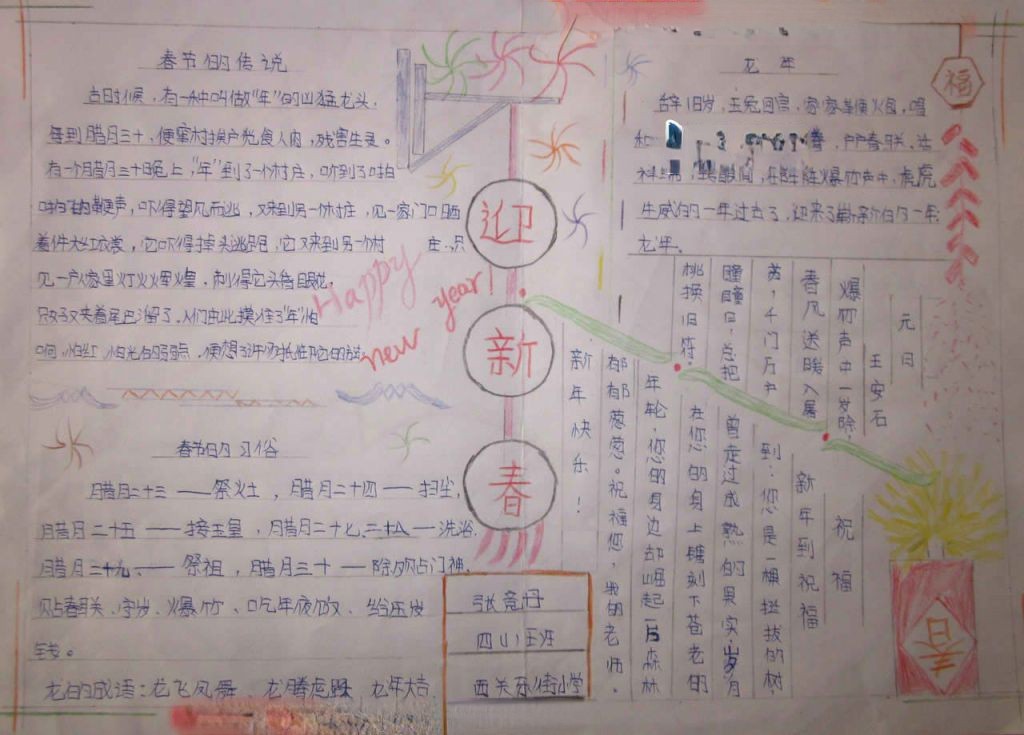 春节的传说
古时候,有一种叫做“年”的凶猛龙头,
每到腊月三十,便窜村挨户,觅食人肉,残害生灵。
有一个腊月三十日晚上,“年”到了一个村庄,听到了啪
啪的鞭声,吓得望风而逃,又来到另一个村庄,见一家门口晒
着件大红衣裳,它吓得掉头逃跑,它又来到另一个村庄,只
见一户人家里灯火辉煌,刺得它头昏眼花,
只好又夹着尾巴溜了,人们由此摸准了“年”怕
响,怕红,怕光的弱点,便想
Happy
new year!
春节的习俗
腊月二十三——祭灶,腊月二十四——扫尘,
腊月二十五——接玉皇,腊月二十七、二十八——洗浴,
腊月二十九——祭祖,腊月三十——除夕贴门神,
贴春联、守岁、爆竹、吃年夜饭、给压岁
钱。
龙的成语:龙飞凤舞、龙腾虎跃、龙年大吉
迎
新
春
张竞丹
四(1)班
西关东街小学
龙年
辞旧岁,玉兔回宫,家家
和 户户春联,送
在阵阵爆竹声中,虎虎
生威的一年过去了,迎来了崭新的一年
龙年。
福
元日
王安石
爆竹声中一岁除,
春风送暖入屠
苏,千门万户
曈曈日,总把
桃换旧符。
祝福
新年到祝福
到:您是一棵挺拔的树
曾走过成熟的果实,岁月
在您的身上镌刻下苍老的
年轮,您的身边却崛起一片森林
郁郁葱葱。祝福您,我的老师。
新年快乐!
春